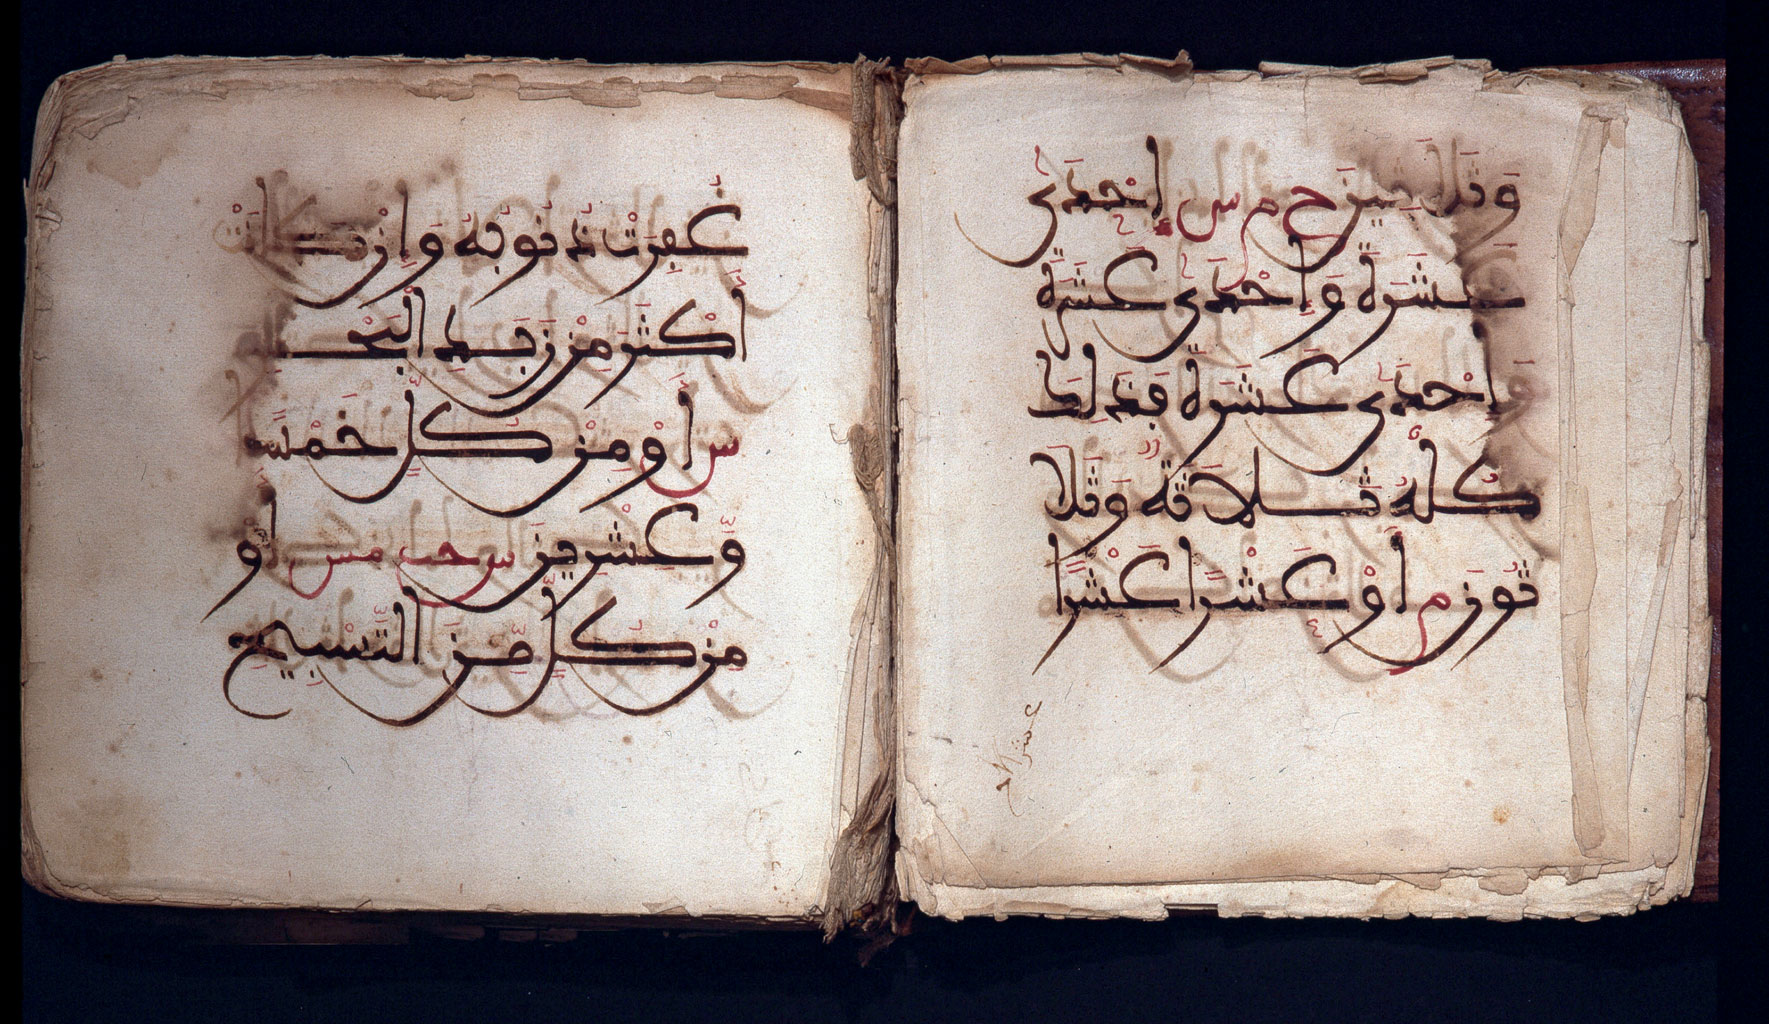 وَثَلَاثِينَ ح م س إِحْدَى
عَشَرَةَ وَإِحْدَى عَشَرَةَ
وَإِحْدَى عَشَرَةَ فَذَلِكَ
كُلُّهُ ثَلَاثَةٌ وَثَلَا
ثُونَ م أَوْ عَشْرًا عَشْرًا
غُفِرَتْ ذُنُوبُهُ وَإِن كَانَتْ
أَكْثَرَ مِنْ زَبَدِ الْبَحْرِ
س أَوْ مِنْ كُلٍّ خَمْسَةً
وَعِشْرِينَ س حب مس أَوْ
مِنْ كُلٍّ مِّنَ التَّسْبِيحِ